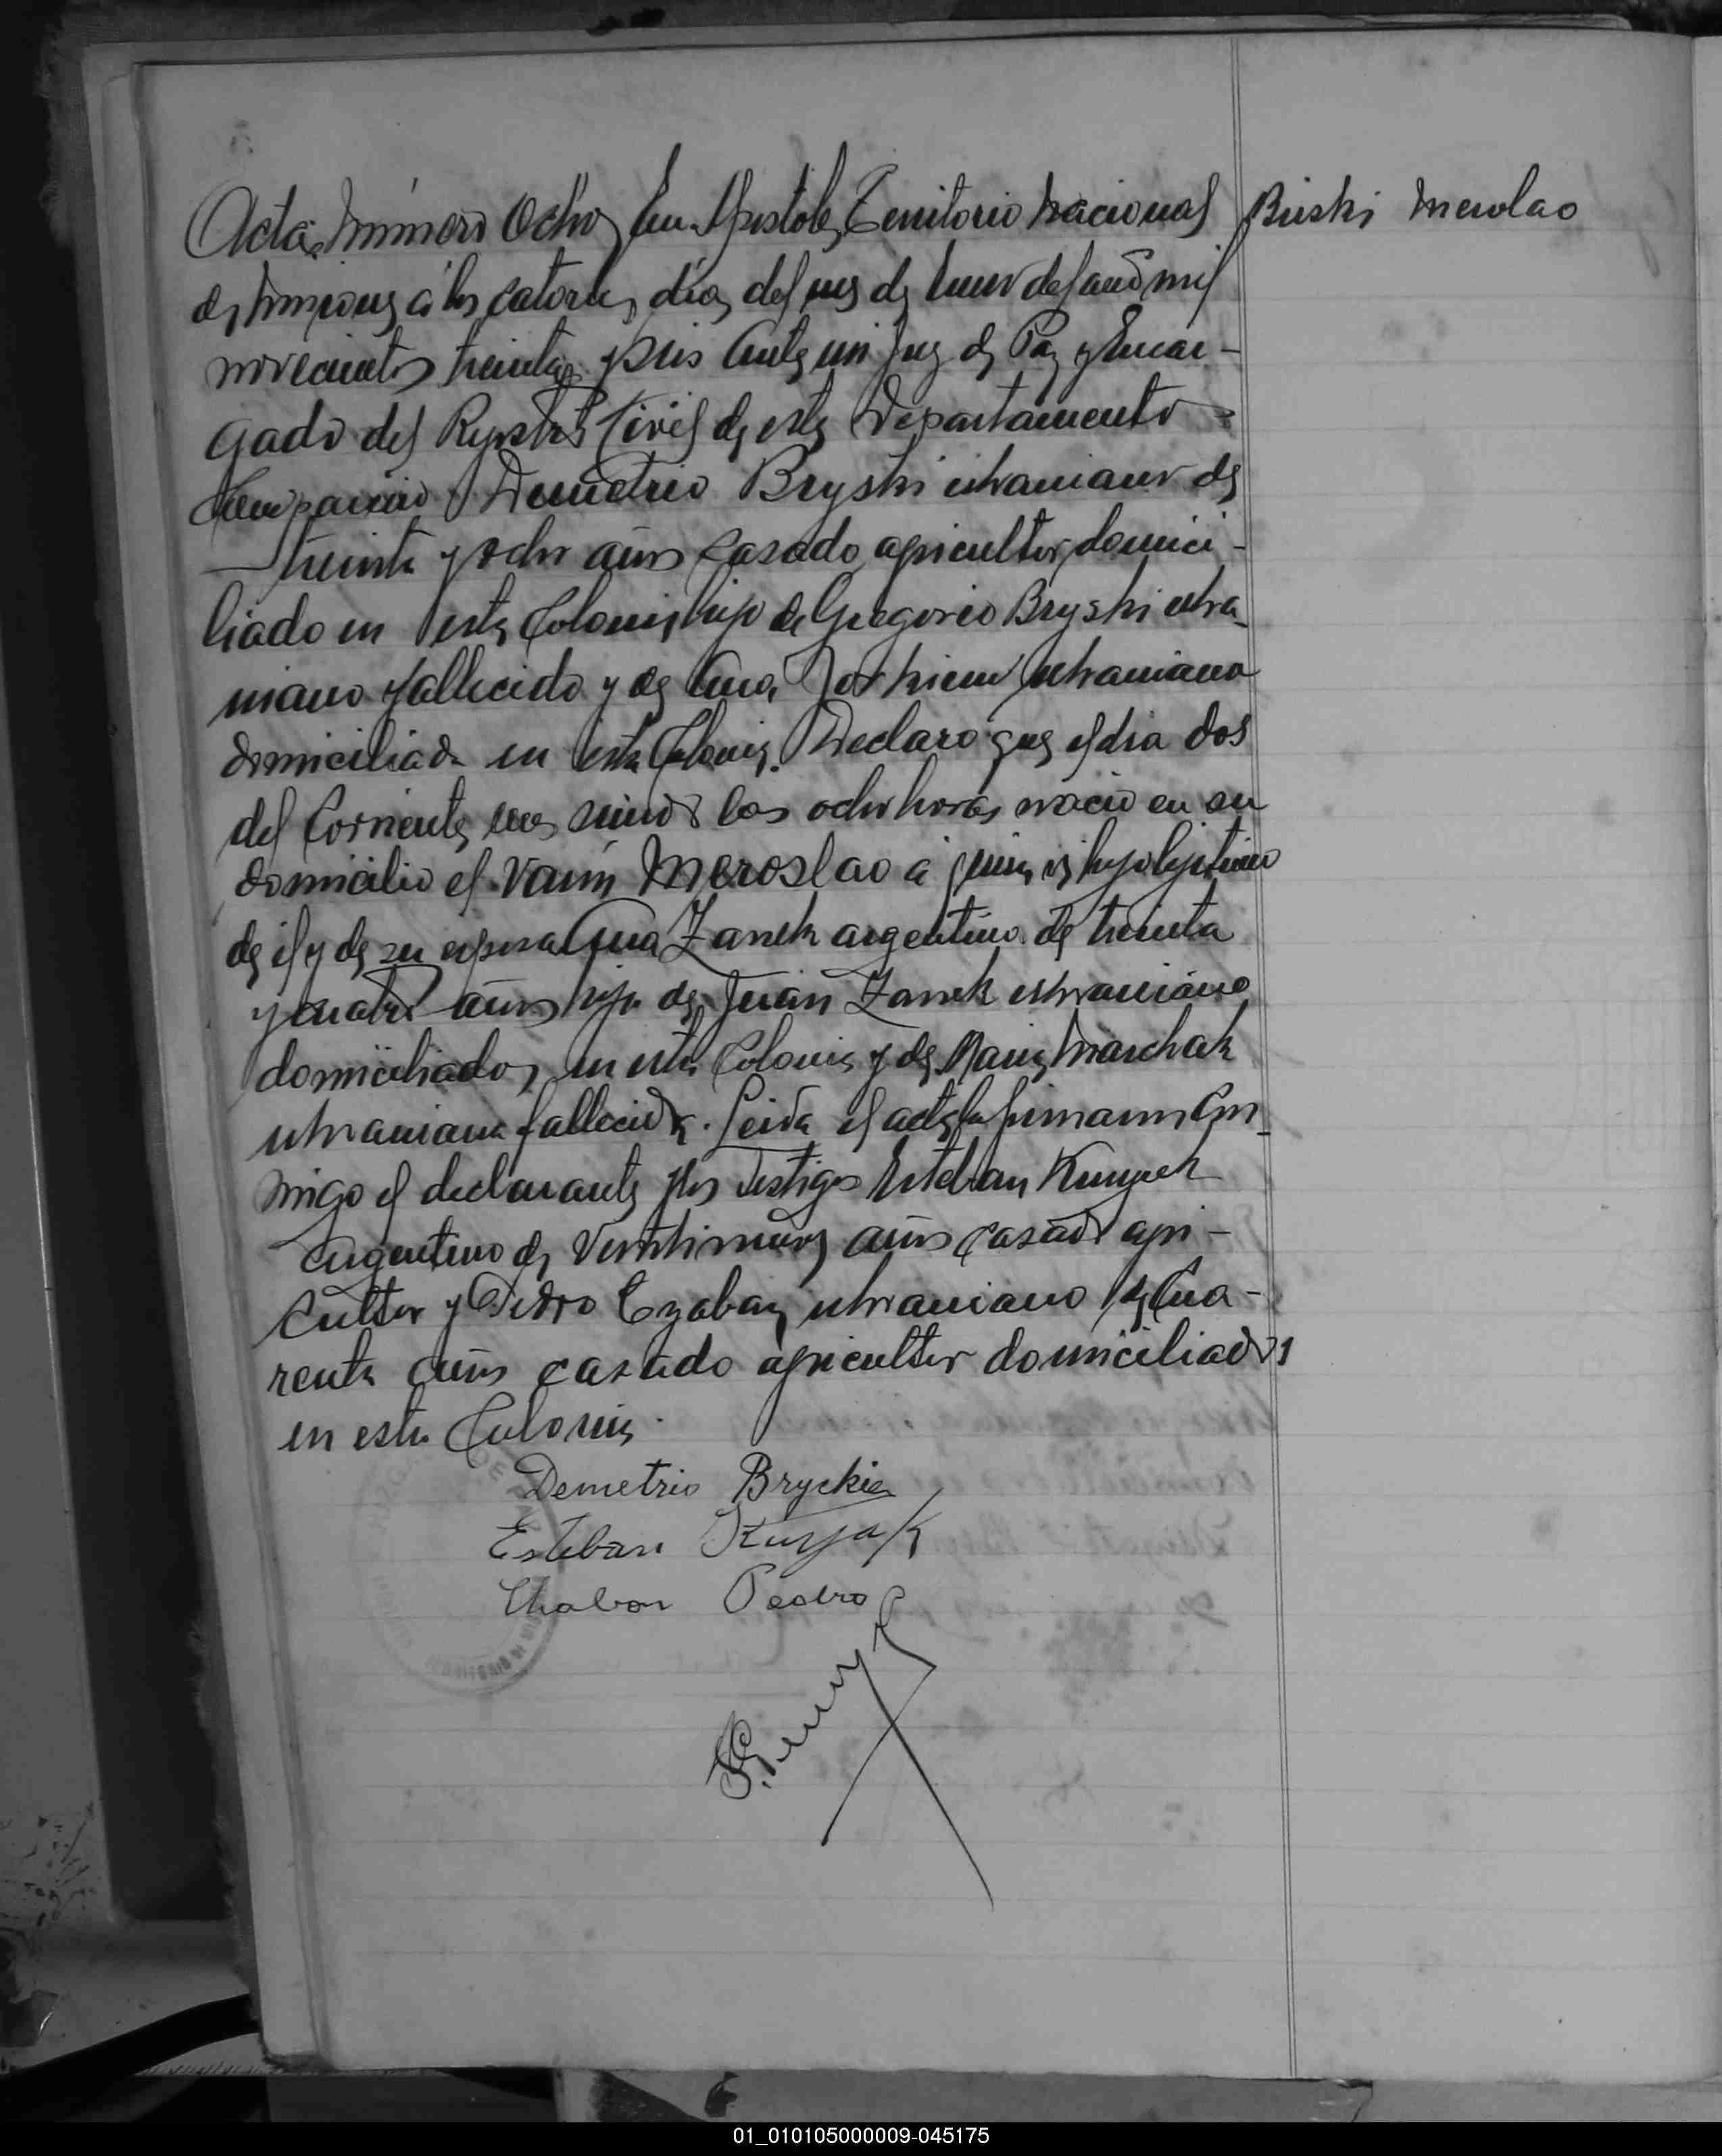 Acta Número Ocho, En Apostoles, Territorio Nacional
de Misiones a los catorce dias del mes de Enero del año mil
novecientos treinta y seis Ante mi Juez de Paz y Encar-
gado del Registro Civil de este Departamento
Comparecio Demetrio Bryski ukraniano de
treinta y ocho años casado agricultor, domici-
liado en esta Colonia, hijo de Gregorio Bryski ukra-
niano fallecido y de Ana ukraniana
domiciliada en esta Colonia. Declaro que el dia dos
del Corriente mes siendo las ocho horas nacio en su
domicilio el Varon Meroslao a quien es hijo lejitimo
de el y de su esposa Ana Zanek argentina de treinta
y cuatro años hija de Juan Zanek ukraniano
domiciliado, en esta Colonia y de Maria Marchak
ukraniana fallecida. Leida el acta la firmaron Con-
migo el declarante y los Testigos Esteban
argentino de Veintinueve años casado agri-
cultor y Pedro Czaban ukraniano de Cua-
renta años casado agricultor domiciliados
en esta Colonia.
Demetrio Bryckie
Esteban Kusjak
Pedro
Briski Merolao
01_010105000009-045175